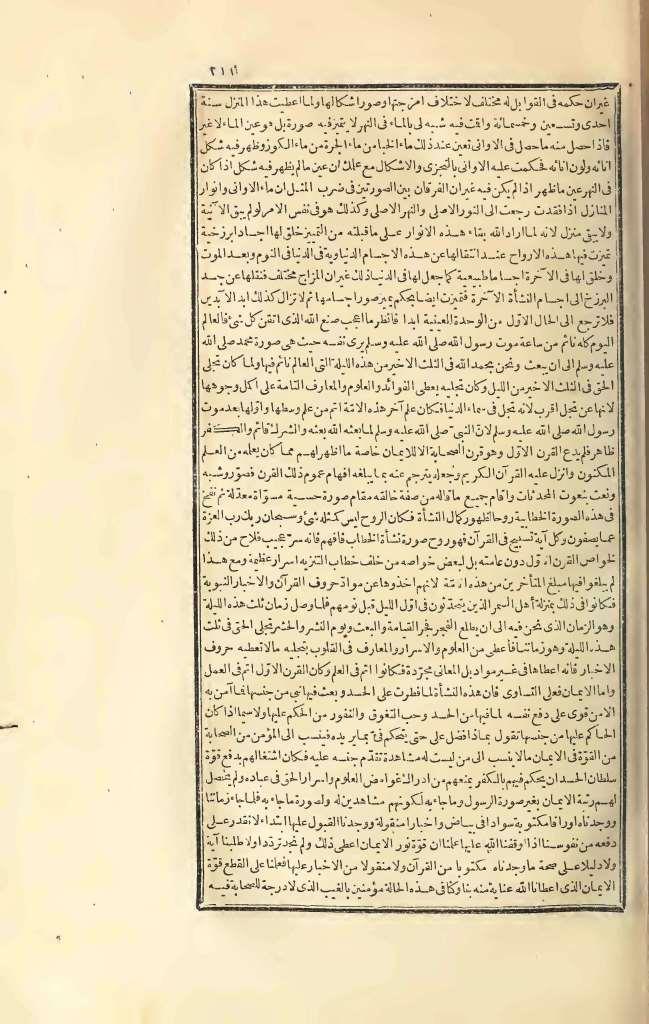 ٢١١
غيران حكمه فى القوابل له مختلف لاختلاف امزجتها وصور اشكالها ولما اعطيت هذا المنزل سنة
احدى وتسعين وخمسمائة واقمت فيه شبه لى بالماء فى النهر لا يتميز فيه صورة بل هو عين الماء لا غير
فاذا حصل منه ما حصل فى الاوانى تعين عند ذلك ماء الحباب من ماء الجرة من ماء الكوز وظهر فيه شكل
انائه ولون انائه فحكمت عليه الاوانى بالتجزى والاشكال مع علمك ان عين مالم يظهر فيه شكل اذا كان
فى النهر عين ماظهر اذا لم يكن فيه غيران الفرقان بين الصورتين فى ضرب المثل ان ماء الاوانى وانوار
المنازل اذا فقدت رجعت الى النور الاصلى والنهر الاصلى وكذلك هو فى نفس الامر لو لم يبق الآنية
ولا يبقى منزل لانه لما اراد الله بقاء هذه الانوار على ماقبلته من التمييز خلق لها اجساد ابرزخية
تميزت فيها هذه الارواح عند انتقالها عن هذه الاجسام الدنياوية فى الدنيا فى النوم وبعد الموت
وخلق لها فى الآخرة اجساما طبيعية كما جعل لها فى الدنيا ذلك غيران المزاج مختلف فنقلها عن جسد
البرزخ الى اجسام النشأة الآخرة فتميزت ايضا بحكم تميز صور اجسامها ثم لاتزال كذلك ابد الآبدين
فلا ترجع الى الحال الاول من الوحدة العينية ابدا فانظر ما اعجب صنع الله الذى اتقن كل شئ فالعالم
اليوم كله نائم من ساعة موت رسول الله صلى الله عليه وسلم يرى نفسه حيث هى صورة محمد صلى الله
عليه وسلم الى ان يبعث ونحن بحمد الله فى الثلث الاخير من هذه الليلة التى العالم نائم فيها ولما كان تجلى
الحق فى الثلث الاخير من الليل وكان تجليه يعطى الفوائد والعلوم والمعارف التامة على اكمل وجوهها
لانها عن تجل اقرب لانه تجل فى سماء الدنيا فكان علم آخر هذه الامة اتم من علم وسطها واولها بعد موت
رسول الله صلى الله عليه وسلم لان النبى صلى الله عليه وسلم لما بعثه الله بعثه والشرك قائم والكفر
ظاهر فلم يدع القرن الاول وهو قرن الصحابة الا للايمان خاصة ما اظهر لهم مما كان يعلمه من العلم
المكنون وانزل عليه القرآن الكريم وجعله يترجم عنه بما يبلغه افهام عموم ذلك القرن فصور وشبه
ونعت بنعوت المحدثات واقام جميع ما قاله من صفة خالقه مقام صورة حسية مسواة معدلة ثم نفخ
فى هذه الصورة الخطابية روحا لظهور كمال النشأة فكان الروح ليس كمثله شئ وسبحان ربك رب العزة
عما يصفون وكل آية تسبيح فى القرآن فهو روح صورة نشأة الخطاب فافهم فانه سر عجيب فلاح من ذلك
لخواص القرن الاول دون عامته بل لبعض خواصه من خلف خطاب التنزيه اسرار عظيمة ومع هذا
لم يبلغوا فيها مبلغ المتأخرين من هذه الامة لانهم اخذوها عن مواد حروف القرآن والاخبار النبوية
فكانوا فى ذلك بمنزلة أهل السمر الذين يتحدثون فى اول الليل قبل نومهم فلما وصل زمان ثلث هذه الليلة
وهو الزمان الذى نحن فيه الى ان يطلع الفجر فجر القيامة والبعث ويوم النشر والحشر تجلى الحق فى ثلث
هذه الليلة وهو زماننا فأعطى من العلوم والاسرار والمعارف فى القلوب بتجليه مالا تعطيه حروف
الاخبار فانه اعطاها فى غير مواد بل المعانى مجردة فكانوا اتم فى العلم وكان القرن الاول اتم فى العمل
واما الايمان فعلى التساوى فان هذه النشأة لما فطرت على الحسد وبعث فيها نبى من جنسها فما آمن به
الامن قوى على دفع نفسه لما فيها من الحسد وحب التفوق والنفور من الحكم عليها ولاسيما اذا كان
الحاكم عليها من جنسها تقول بماذا فضل على حتى يتحكم فى بما يريده فينسب الى المؤمن من الصحابة
من القوة فى الايمان مالاينسب الى من ليست له مشاهدة تقدم جنسه عليه فكان اشتغالهم بدفع قوة
سلطان الحسد ان يحكم فيهم بالكفر يمنعهم من ادراك غوامض العلوم واسرار الحق فى عباده ولم يتحصل
لهم رتبة الايمان بغير صورة الرسول وماجاء به لكونهم مشاهدين له ولصورة ماجاء به فلما جاء زماننا
ووجدناه اوراقا مكتوبة سوادا فى بياض واخبارا منقولة ووجدنا القبول عليها ابتداء لا نقدر على
دفعه من نفوسنا اذا وقفنا الله عليها علمنا ان قوة نور الايمان اعطى ذلك ولم نجد تردد اولا طلبنا آية
ولا دليلا على صحة ماوجدناه مكتوبا من القرآن ولا منقولا من الاخبار عليها فعلنا على القطع قوة
الايمان الذى اعطانا الله عناية منه بنا وكنا فى هذه الحالة مؤمنين بالغيب الذى لا درجة للصحابة فيه